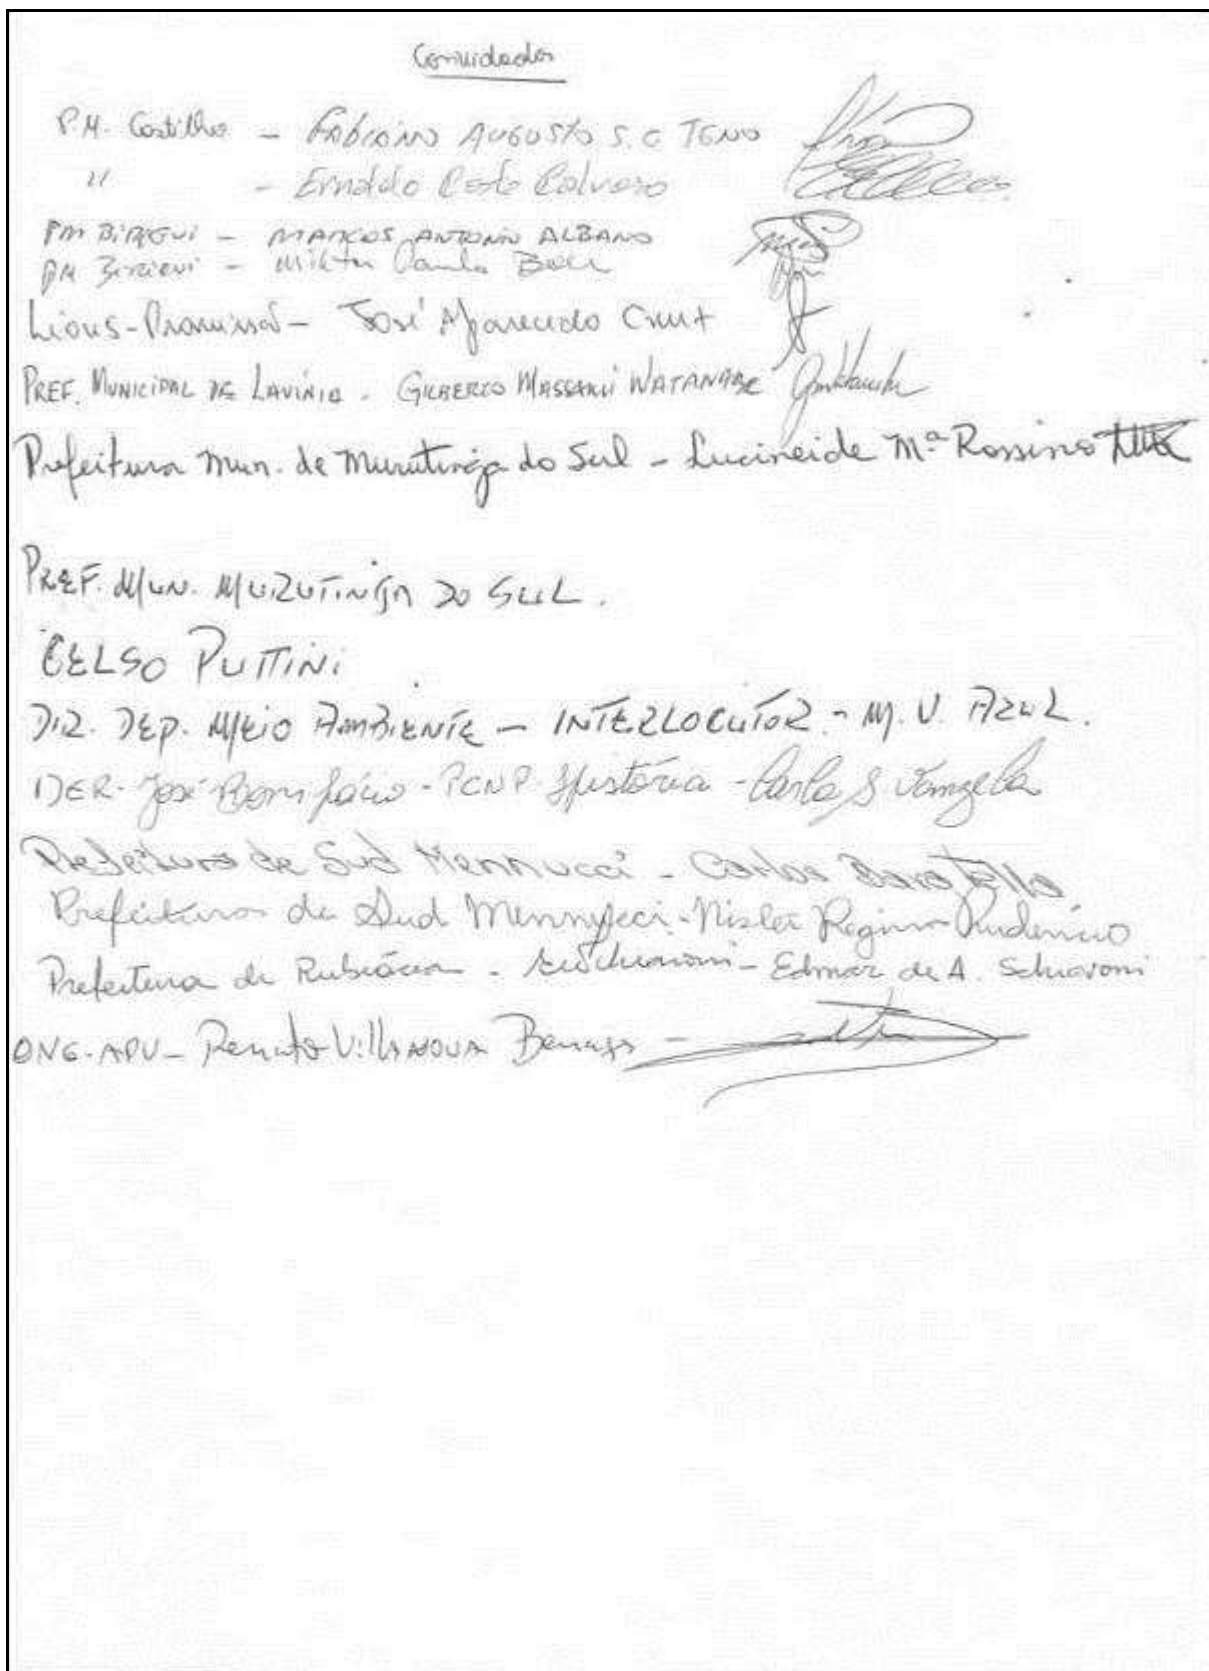 Convidados
P.M. Castilho - FABIANO AUGUSTO S. C TENO
" - Ernaldo Calvoso
PM BIRIGUI - MARCOS ANTONIO ALBANO
PM BIRIGUI - Milton Paulo
Lions-Promissão - José Aparecido
PREF. MUNICIPAL DE LAVÍNIA - GILBERTO MASSAKI WATANABE
Prefeitura Mun. de Murutinga do Sul - Lucineide Mª Rossino
PREF. MUN. MURUTINGA DO SUL.
CELSO PUTTINI
DIR. DEP. MEIO AMBIENTE - INTERLOCUTOR - M. V. AZUL.
DER - José Bonifácio - PCNP - História - Carla S.
Prefeitura de Sud Mennucci - Carlos
Prefeitura de Sud Mennucci - Regina Prudencio
Prefeitura de Rubiácea - Edmar de A. Schiavoni
ONG-APU - Renato VILLANOVA